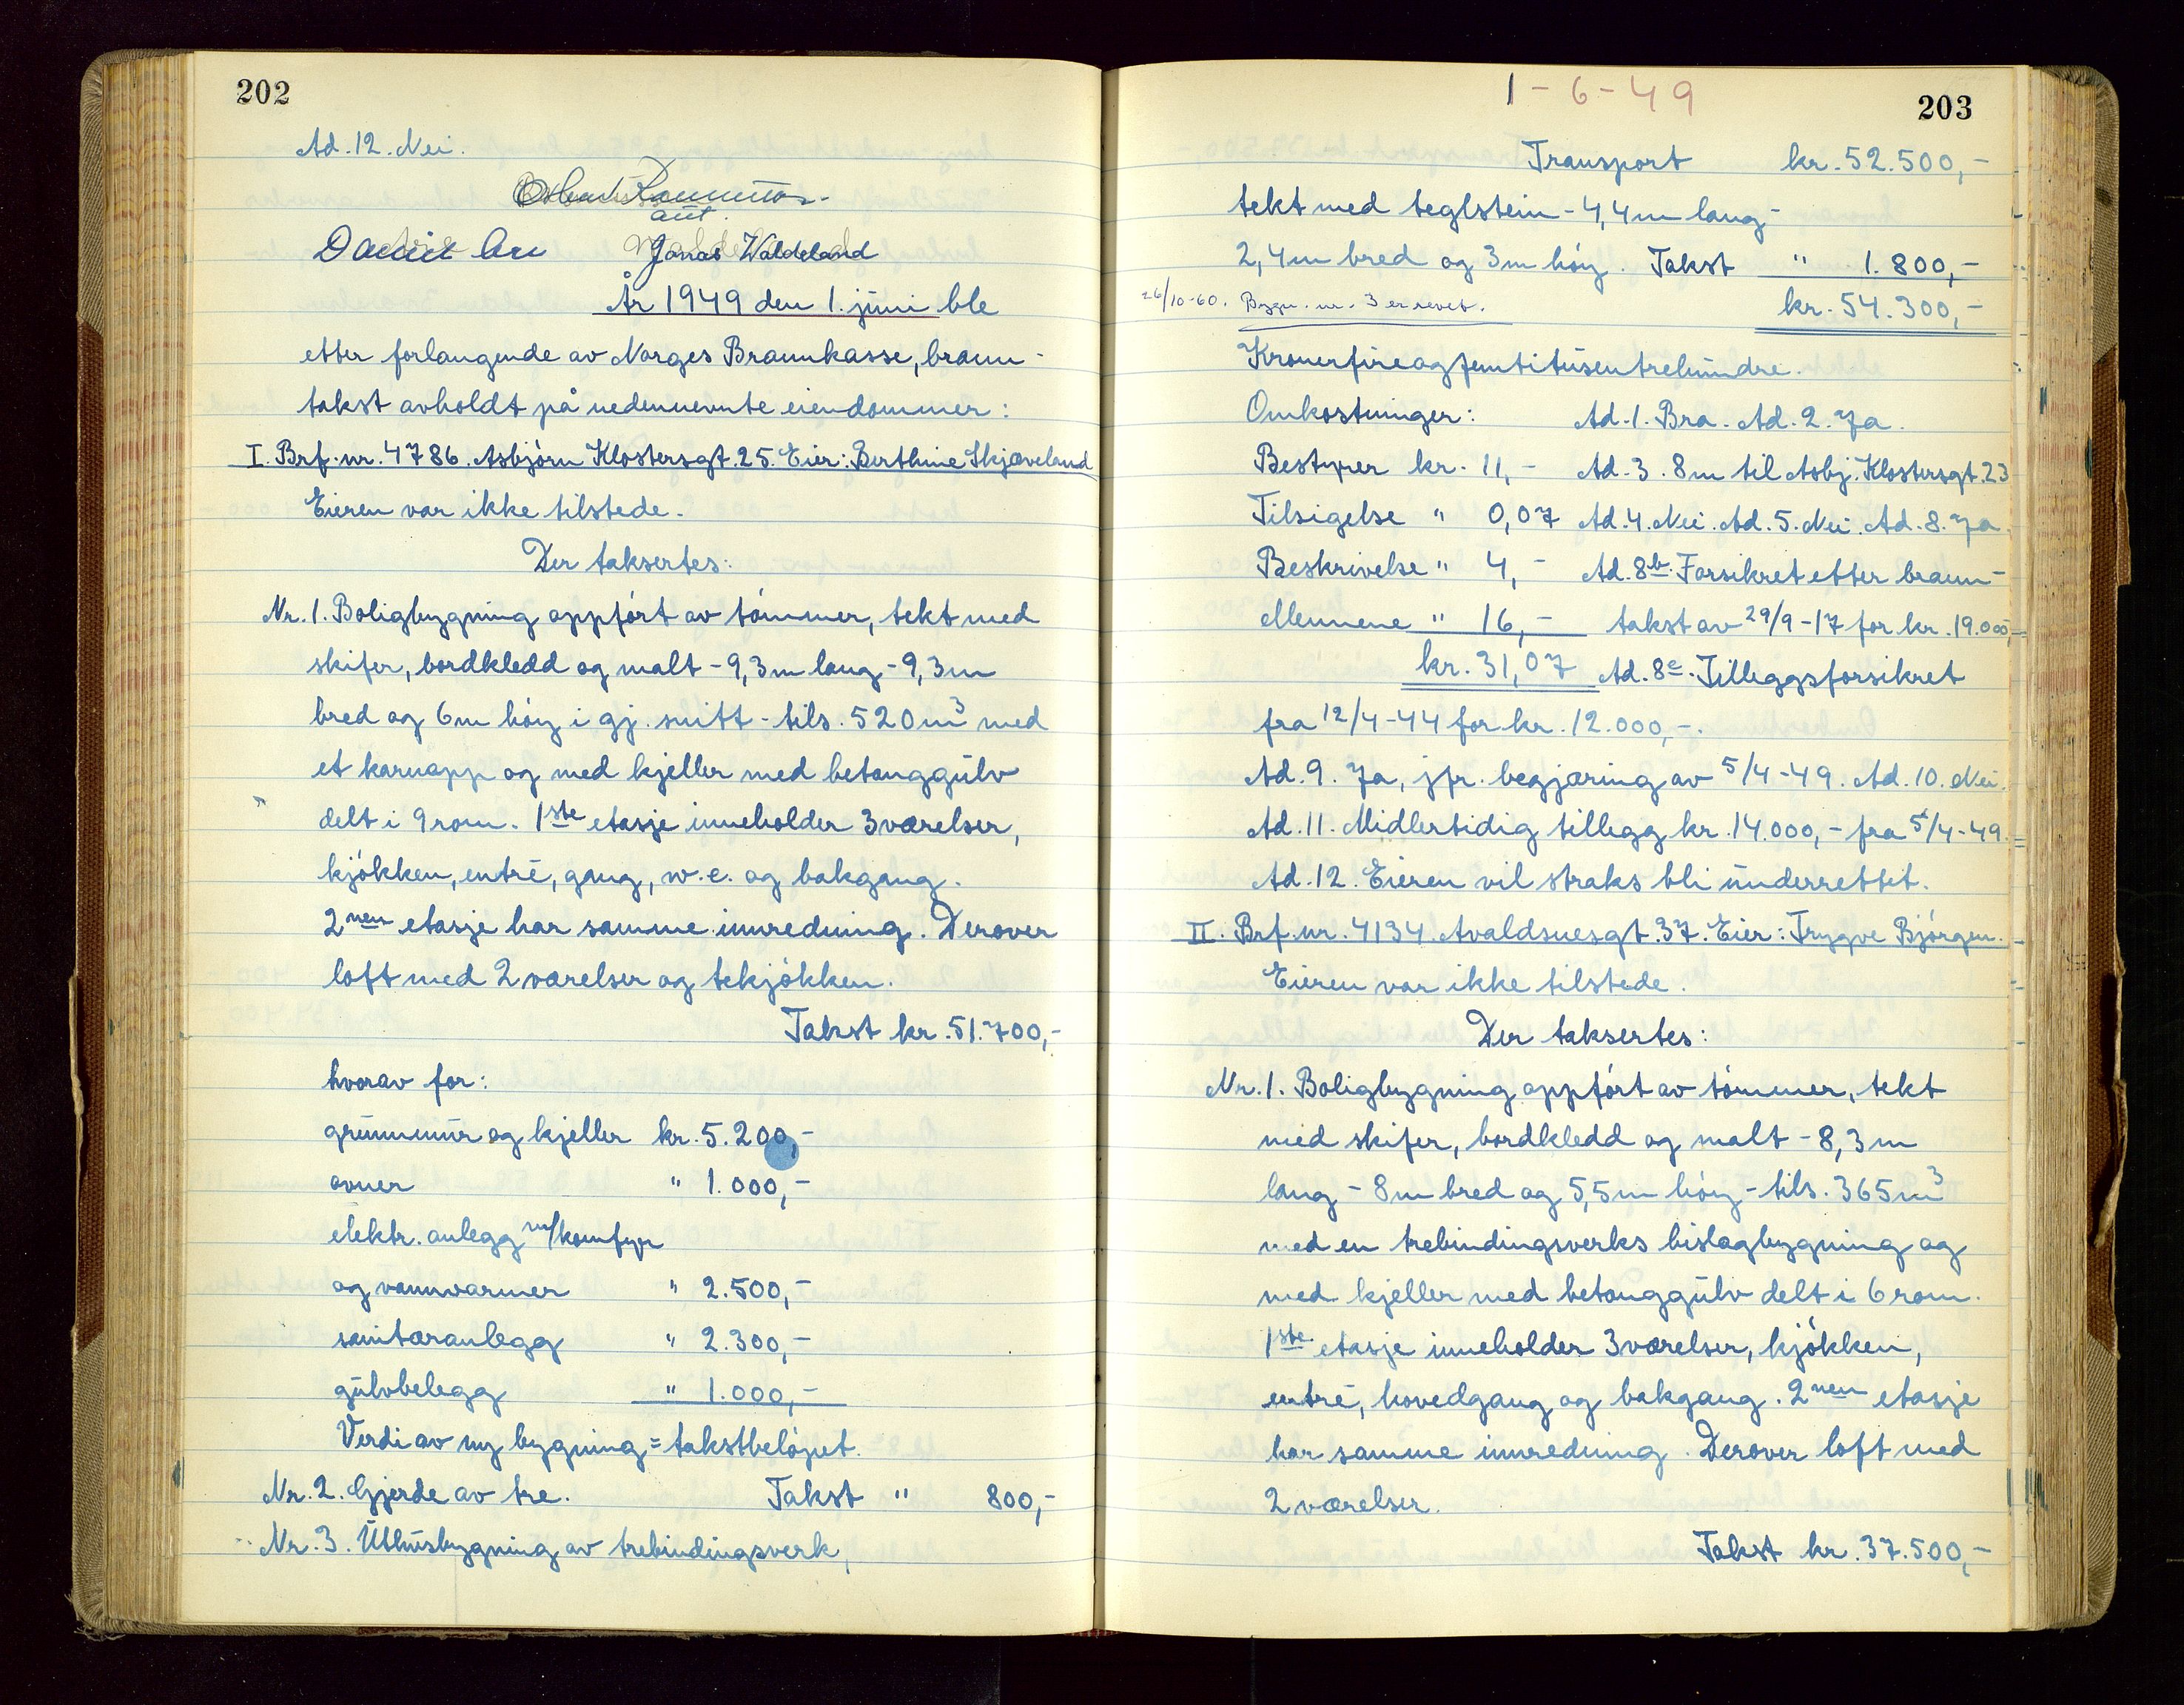 202
Ad. 12. Nei.
aut.
Jonas Waldeland
År 1949 den 1. juni ble
etter forlangende av Norges Brannkasse, brann-
takst avholdt på nedennevnte eiendommer:
I. Brf. nr. 4786. Asbjørn Klostersgt. 25. Eier: Berthine Skjæveland
Eieren var ikke tilstede.
Der taksertes:
Nr. 1. Boligbygning oppført av tömmer, tekt med
skifer, bordkledd og malt - 9,3 m lang - 9,3 m
bred og 6 m höy i gj. snitt - tils. 520 m³ med
et karnapp og med kjeller med betonggulv
delt i 9 rom. 1ste etasje inneholder 3 værelser,
kjökken, entré, gang, w.c. og bakgang.
2nen etasje har samme innredning. Derover
loft med 2 værelser og tekjökken.
Takst kr. 51.700,-
hvorav for:
grunnmur og kjeller kr. 5.200,-
ovner " 1.000,-
elektr. anlegg m/komfyr
og vannvarmer " 2.500,-
sanitæranlegg " 2.300,-
gulvbelegg " 1.000,-
Verdi av ny bygning = takstbelöpet.
Nr. 2. Gjerde av tre. Takst " 800,-
Nr. 3. Uthusbygning av trebindingsverk,
1-6-49
203
Transport kr. 52.500,-
tekt med teglstein - 4,4 m lang -
2,4 m bred og 3 m höy. Takst " 1.800,-
26/10-60. Bygn. nr. 3 er revet.
kr. 54.300,-
Kronerfireogfemtitusentrehundre.
Omkostninger: Ad. 1. Bra. Ad. 2. Ja.
Bestyrer kr. 11,- Ad. 3. 8 m til Asbj. Klostersgt. 23
Tilsigelse " 0,07 Ad. 4. Nei. Ad. 5. Nei. Ad. 8. Ja.
Beskrivelse " 4,- Ad. 8b. Forsikret etter brann-
Mennene " 16,- takst av 29/9-17 for kr. 19.000,-
kr. 31,07 Ad. 8c. Tilleggsforsikret
fra 12/4-44 for kr. 12.000,-.
Ad. 9. Ja, jfr. begjæring av 5/4-49. Ad. 10. Nei.
Ad. 11. Midlertidig tillegg kr. 14.000,- fra 5/4-49.
Ad. 12. Eieren vil straks bli underrettet.
II. Brf. nr. 4134. Avaldsnesgt. 37. Eier: Trygve Björgen.
Eieren var ikke tilstede.
Der taksertes:
Nr. 1. Boligbygning oppfört av tömmer, tekt
med skifer, bordkledd og malt - 8,3 m
lang - 8 m bred og 5,5 m höy - tils. 365 m³
med en trebindingsverks bislagbygning og
med kjeller med betonggulv delt i 6 rom.
1ste etasje inneholder 3 værelser, kjökken,
entré, hovedgang og bakgang. 2nen etasje
har samme innredning. Derover loft med
2 værelser.
Takst kr. 37.500,-